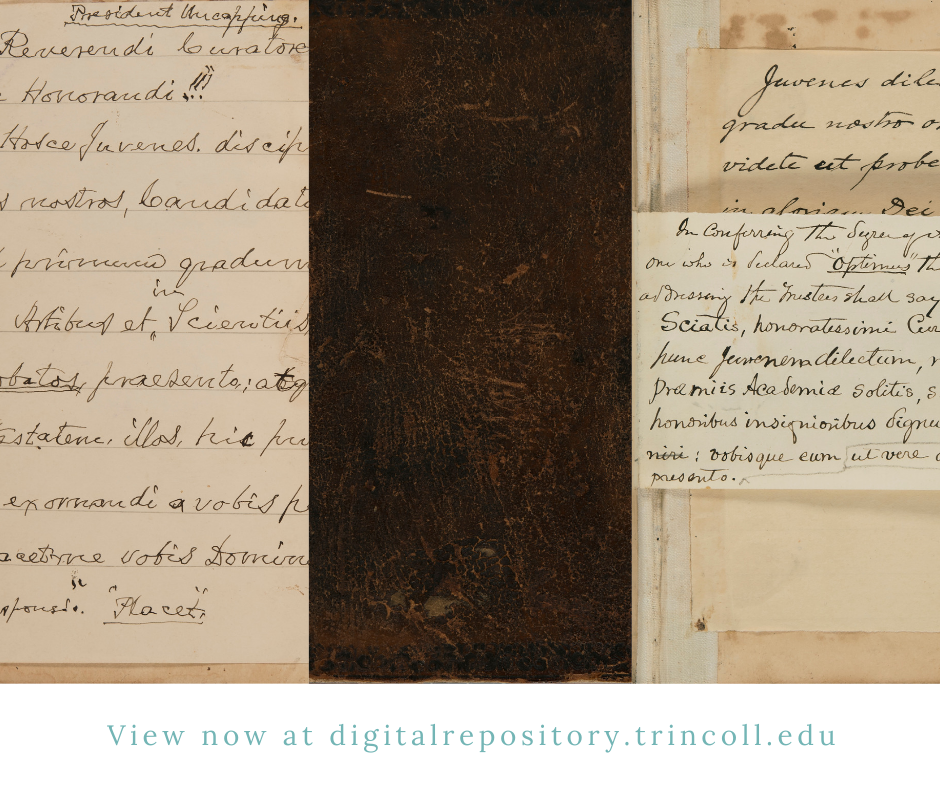 President Uncapping.
Reverendi Curatore
Honorandi !!!
Hosce Juvenes. discip
s nostros, Candidat
primum gradum
in
Artibus et Scientiis
obatos, praesento; atq
illos, hic pu
exornandi a vobis p
acetne vobis Domin
"Placet."
Juvenes dile
gradu nostro o
videte ut probe
in gloriam Dei
In Conferring the Degree
one who is declared "Optimus" th
addressing the Trustees shall say
Sciatis, honoratissimi Cur
hunc Juvenem dilectum,
Præmiis Academiæ solitis, s
honoribus insignioribus dignu
niri : vobisque eum ut vere
presento.
View now at digitalrepository.trincoll.edu